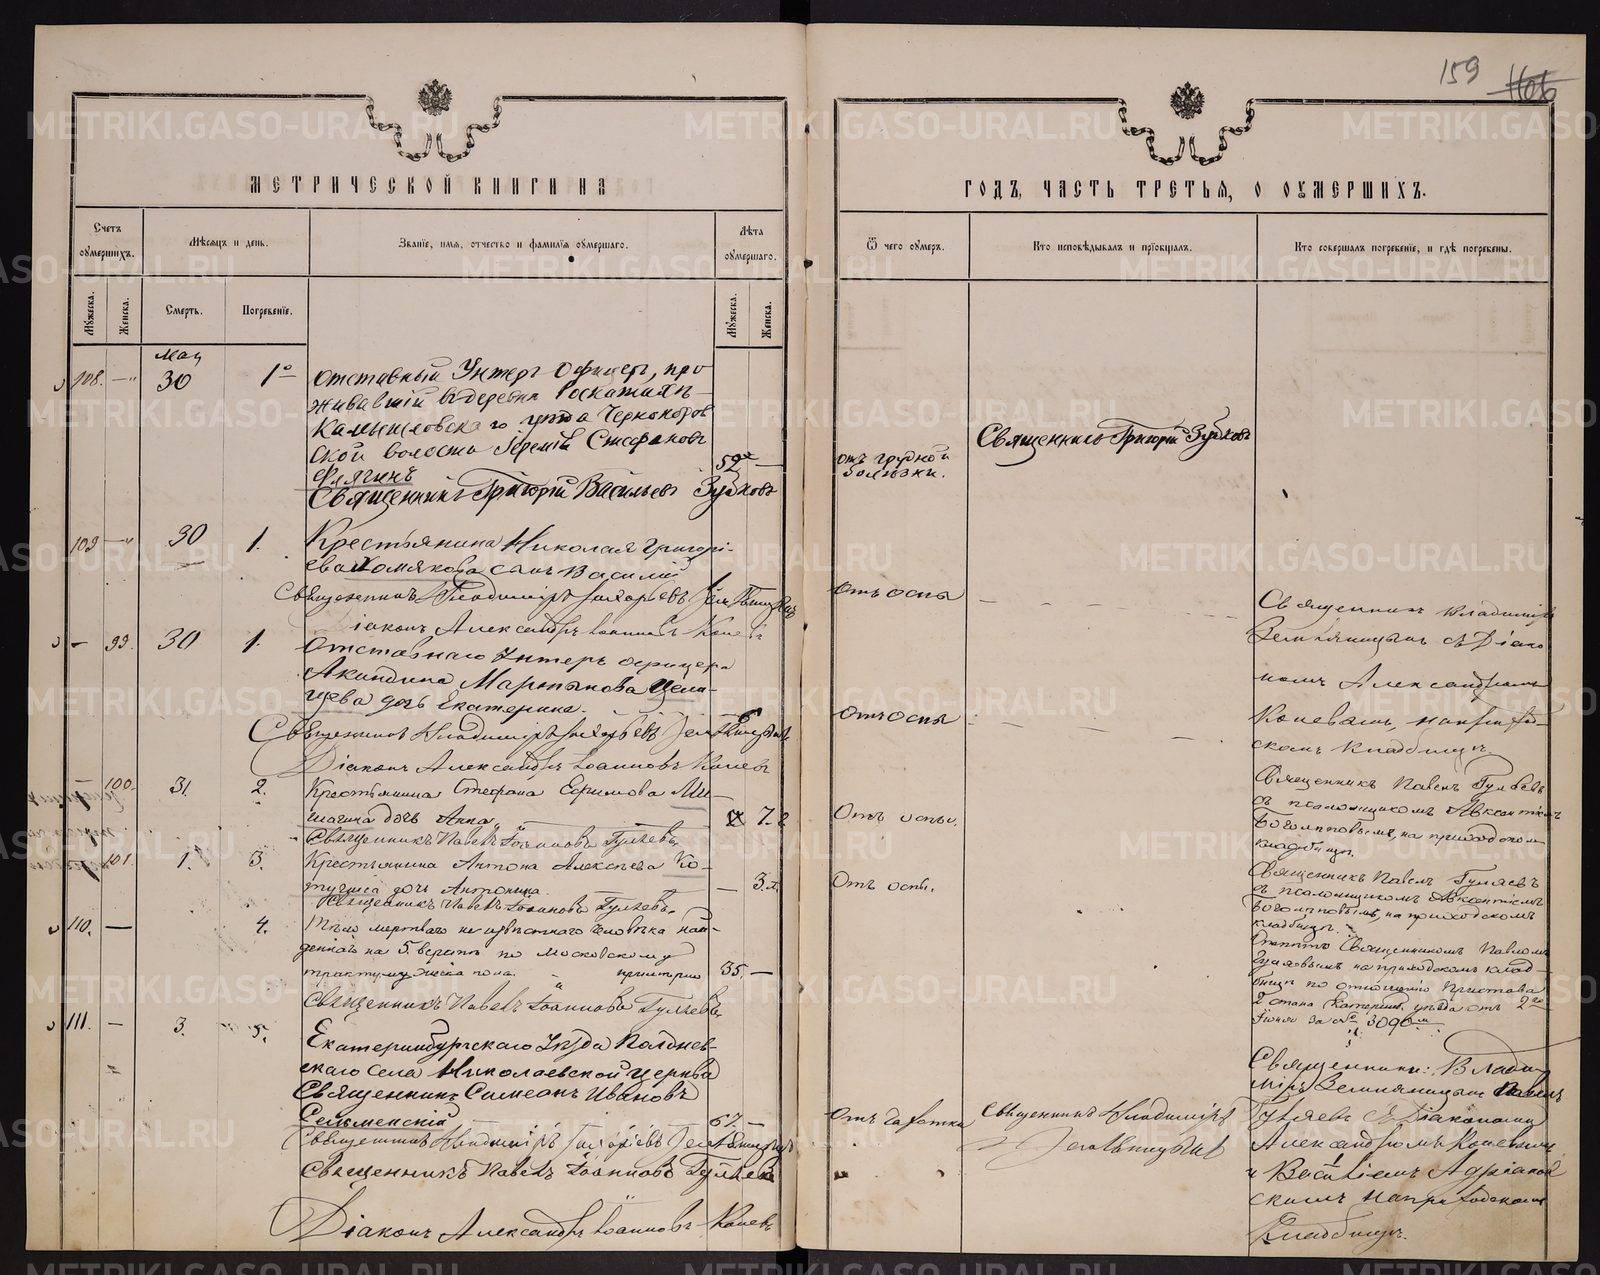 159
МЕТРИЧЕСКОЙ КНИГИ НА
ГОДЪ, ЧАСТЬ ТРЕТЬЯ, О ОУМЕРШИХЪ.
Счетъ оумершихъ.
Мѣсяцъ и день.
Званіе, имя, отчество и фамилія оумершаго.
Лѣта оумершаго.
Ѿ чего оумеръ.
Кто исповѣдывалъ и пріобщалъ.
Кто совершалъ погребеніе, и гдѣ погребены.
Мужеска.
Женска.
Смерть.
Погребеніе.
Мужеска.
Женска.
108. — Мая 30 1
отставный Унтеръ Офицеръ, про
живавшій въ деревни
Камышловскаго уѣзда
ской волости Іеремія Стефановъ
Флягинъ 52 —
Священникъ Григорій Васильевъ Зубковъ
отъ грудной
болѣзни.
Священникъ Григорій Зубковъ
109 — 30 1.
Крестьянина Николая Григорі-
ева Хомякова сынъ Василій
Священникъ Владиміръ
Діаконъ Александръ Іоанновъ Коневъ
Отъ оспы
Священникъ Владиміръ
съ Діако
номъ Александромъ
— 99. 30 1.
Отставнаго Унтеръ офицера
Акиндина Мартьянова
дочь Екатерина.
Священникъ Владиміръ
Діаконъ Александръ Іоанновъ Коневъ
Отъ оспы
Коневымъ, на
скомъ кладбищѣ
— 100. 31. 2.
Крестьянина Стефана Ефимова Ми-
шагина дочь Анна 7.
Священникъ Павелъ Іоанновъ Гуляевъ
Отъ оспы.
Священникъ Павелъ Гуляевъ
съ псаломщикомъ Авксентіемъ
Боголѣповымъ, на приходскомъ
кладбищѣ.
101. 1. 3.
Крестьянина Антона Алексѣева Ко-
дочь Антонина. — 3.
Священникъ Павелъ Іоанновъ Гуляевъ.
Отъ оспы.
Священникъ Павелъ Гуляевъ
съ псаломщикомъ Авксентіемъ
Боголѣповымъ, на приходскомъ
кладбищѣ.
110. — 4.
Тѣло мертваго неизвѣстнаго человѣка най-
деннаго на 5. верстѣ по Московскому
тракту мужеска пола. примѣрно 35 —
Священникъ Павелъ Іоанновъ Гуляевъ
Отпѣтъ Священникомъ Павломъ
Гуляевымъ на приходскомъ клад-
бищѣ по отношенію Пристава
2 стана Екатеринб. уѣзда отъ 2го
Іюня за № 3090
111. — 3. 5.
Екатеринбургскаго Уѣзда Полднев-
скаго села Николаевской церкви
Священникъ Симеонъ Ивановъ
Сельменскій 67. —
Священникъ Владиміръ
Священникъ Павелъ Іоанновъ Гуляевъ
Діаконъ Александръ Іоанновъ Коневъ
Отъ чахотки
Священникъ Владиміръ
Священники: Влади
міръ Павелъ
Гуляевъ съ Діаконами
Александромъ Коневымъ
и
скимъ на приходскомъ
кладбищѣ.
METRIKI.GASO-URAL.RU